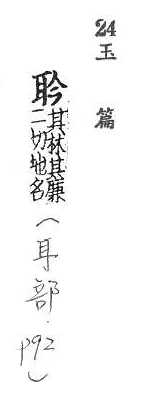 24玉篇
聆其林其廉二切地名(耳部.P92)